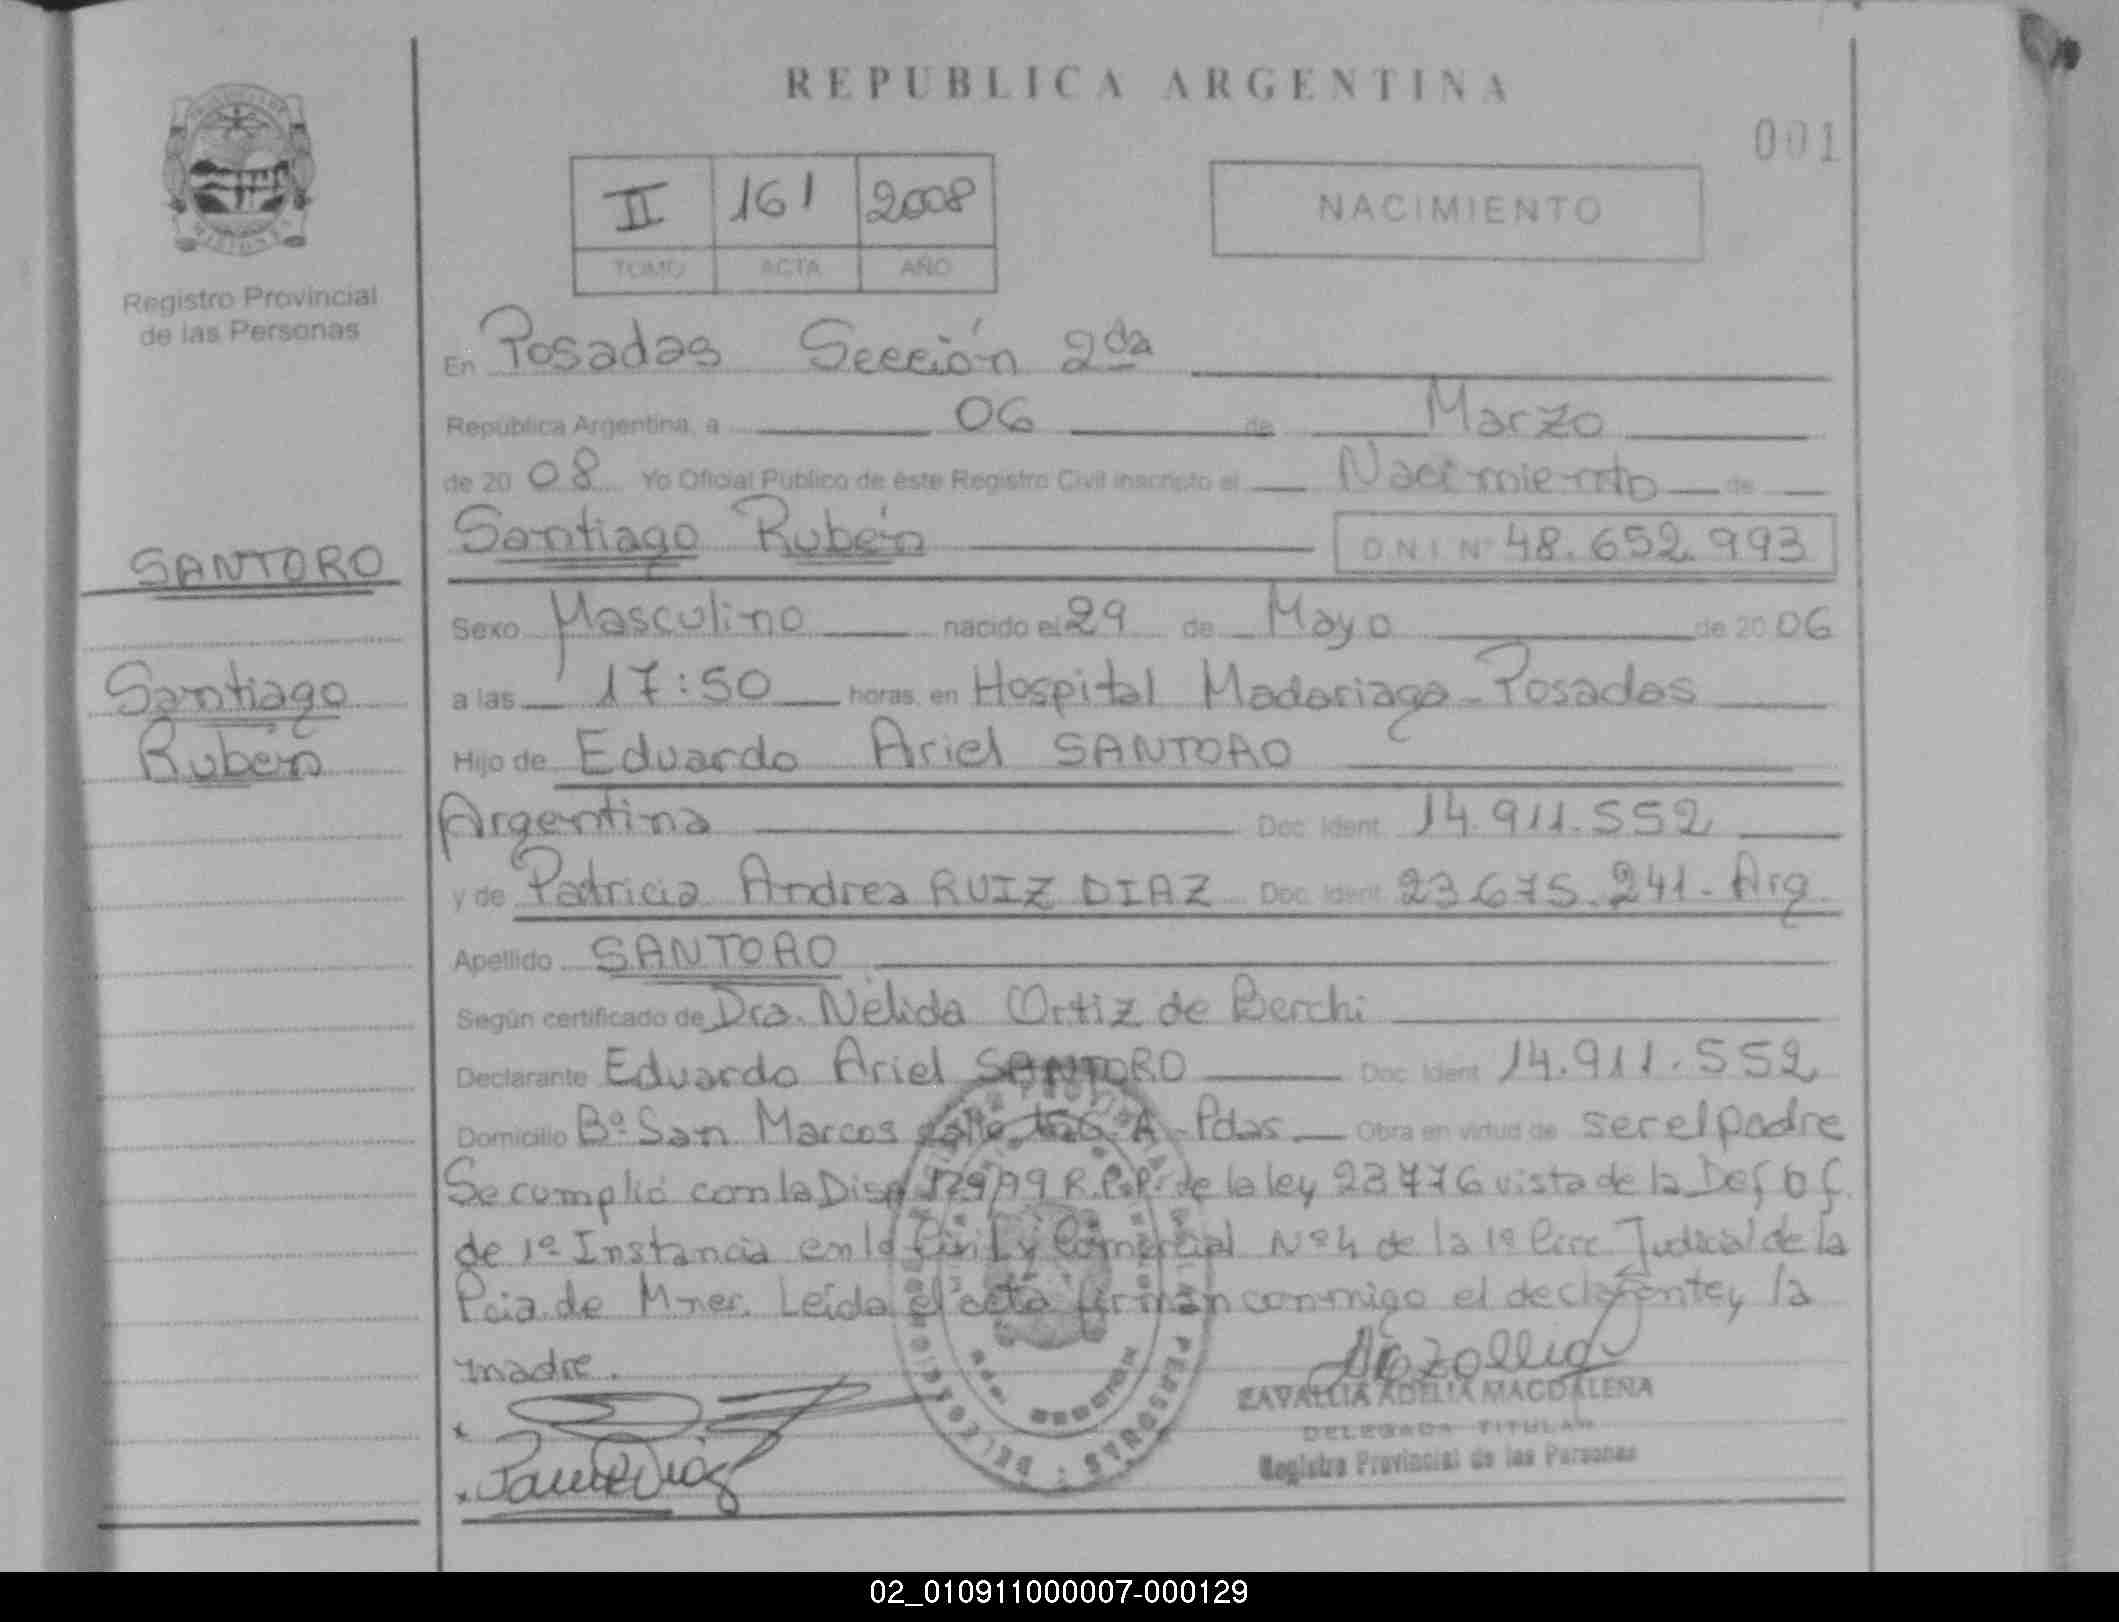 REPUBLICA ARGENTINA
001
II 161 2008
TOMO ACTA AÑO
NACIMIENTO
Registro Provincial
de las Personas
SANTORO
Santiago
Rubén
En Posadas Sección 2da
República Argentina, a 06 de Marzo
de 20 08 Yo Oficial Público de éste Registro Civil inscripto el Nacimiento de
Santiago Rubén D.N.I. Nº 48.652.993
Sexo Masculino nacido el 29 de Mayo de 20 06
a las 17:50 horas, en Hospital Madariaga - Posadas
Hijo de Eduardo Ariel SANTORO
Argentina Doc. Ident. 14.911.552
y de Patricia Andrea RUIZ DIAZ Doc. Ident. 23.675.241 - Arg.
Apellido SANTORO
Según certificado de Dra. Nélida Ortiz de Berchi
Declarante Eduardo Ariel SANTORO Doc. Ident. 14.911.552
Domicilio Bº San Marcos A - Pdas. Obra en virtud de ser el padre
Se cumplió con la Disp 179/99 R.P.P. de la ley 23776 vista de la Def. Of.
de 1º Instancia en lo Civil y Comercial Nº 4 de la 1º Circ. Judicial de la
Pcia. de Mnes. Leída el acta firman conmigo el declarante y la
madre.
ZAVALLIA ADELIA MAGDALENA
DELEGADA TITULAR
Registro Provincial de las Personas
02_010911000007-000129